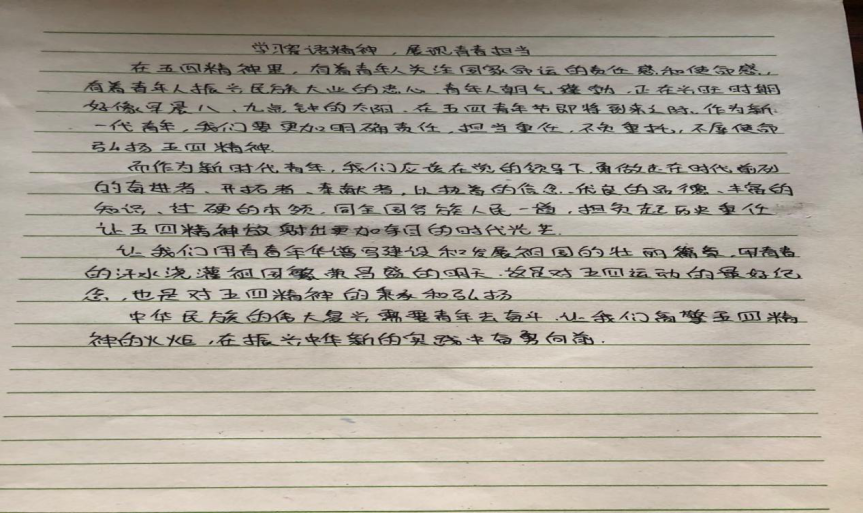 学习习语精神，展现青春担当
在五四精神里，有着青年人关注国家命运的责任感和使命感，
有着青年人振兴民族大业的忠心。青年人朝气蓬勃，正在兴旺时期
好像早晨八、九点钟的太阳。在五四青年节即将到来之时，作为新
一代青年，我们要更加明确责任，担当重任，不负重托，不辱使命
弘扬五四精神.
而作为新时代青年，我们应该在党的领导下，勇做走在时代前列
的奋进者、开拓者、奉献者，以执着的信念、优良的品德、丰富的
知识、过硬的本领，同全国各族人民一道，担负起历史重任
让五四精神放射出更加夺目的时代光芒.
让我们用青春年华谱写建设和发展祖国的壮丽篇章，用青春
的汗水浇灌祖国繁荣昌盛的明天.这是对五四运动的最好纪
念，也是对五四精神的秉承和弘扬
中华民族的伟大复兴需要青年去奋斗.让我们高擎五四精
神的火炬，在振兴中华新的实践中奋勇向前.